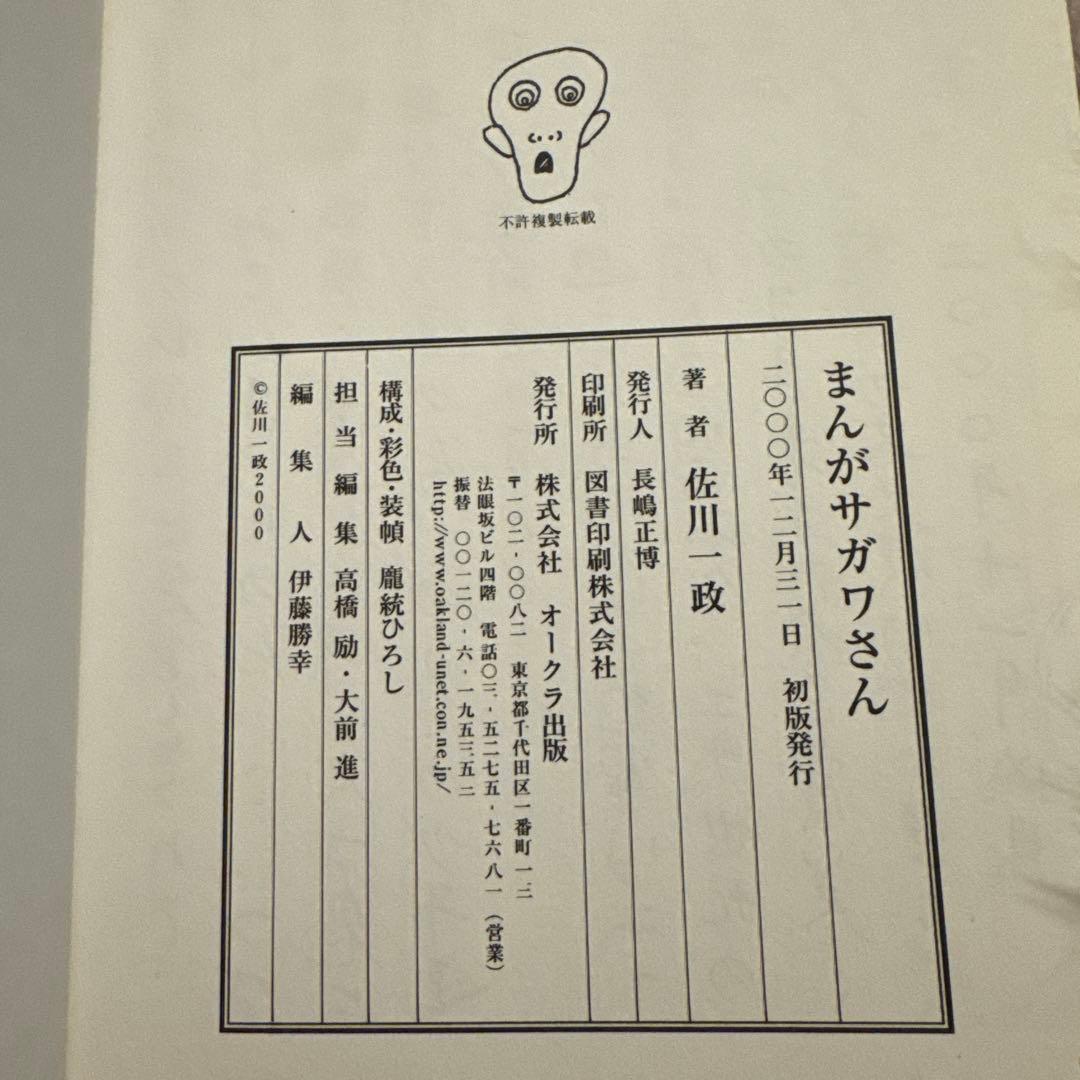 不許複製転載
まんがサガワさん
二〇〇〇年一二月三一日 初版発行
著者 佐川一政
発行人 長嶋正博
印刷所 図書印刷株式会社
発行所 株式会社 オークラ出版
〒一〇二-〇〇八二 東京都千代田区一番町一-三
法眼坂ビル四階 電話〇三-五二七五-七六八一(営業)
振替 〇〇一二〇-六-一九五三五二
http://www.oakland-unet.con.ne.jp/
構成・彩色・装幀 龐統ひろし
担当編集 高橋 励・大前 進
編集人 伊藤勝幸
©佐川一政2000